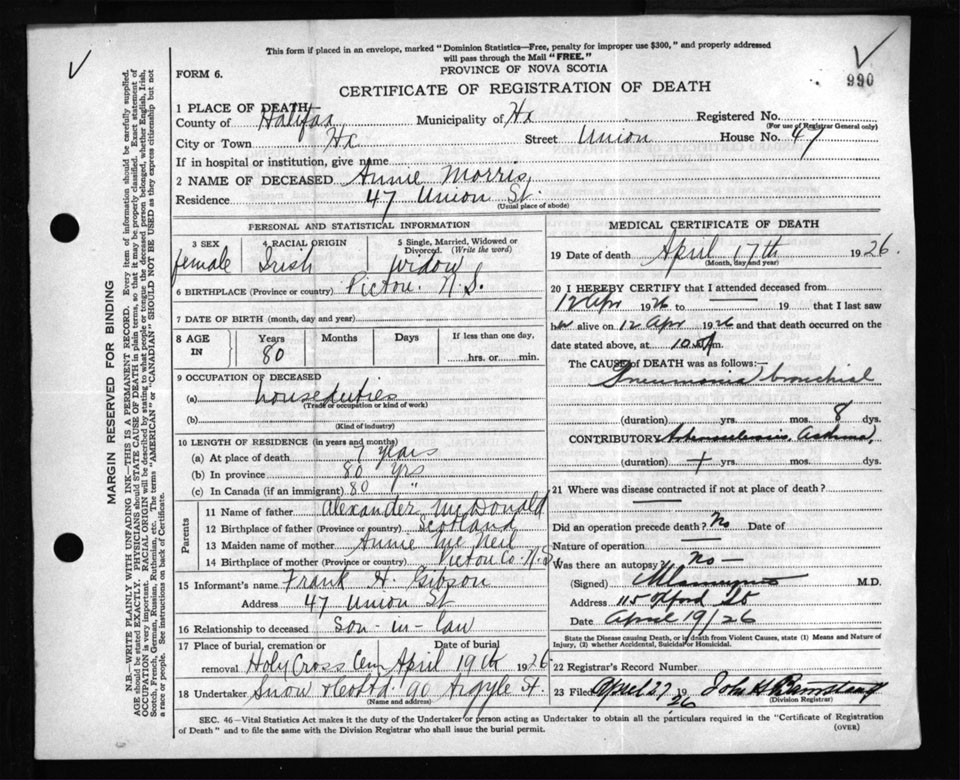 This form if placed in an envelope, marked "Dominion Statistics—Free, penalty for improper use $300," and properly addressed
will pass through the Mail "FREE."
990
FORM 6.
PROVINCE OF NOVA SCOTIA
CERTIFICATE OF REGISTRATION OF DEATH
1 PLACE OF DEATH—
County of Halifax Municipality of Hx Registered No.
(For use of Registrar General only)
City or Town Hx Street Union House No. 47
If in hospital or institution, give name
2 NAME OF DECEASED Annie Morris
Residence 47 Union St.
(Usual place of abode)
PERSONAL AND STATISTICAL INFORMATION
3 SEX 4 RACIAL ORIGIN 5 Single, Married, Widowed or
Divorced. (Write the word)
female Irish widow
6 BIRTHPLACE (Province or country) Pictou. N.S.
7 DATE OF BIRTH (month, day and year)
8 AGE IN Years Months Days If less than one day,
80 hrs. or min.
9 OCCUPATION OF DECEASED
(a) houseduties
(Trade or occupation or kind of work)
(b)
(Kind of industry)
10 LENGTH OF RESIDENCE (in years and months)
(a) At place of death 7 years
(b) In province 80 yrs
(c) In Canada (if an immigrant) 80 "
Parents
11 Name of father Alexander McDonald
12 Birthplace of father (Province or country) Scotland
13 Maiden name of mother Annie McNeil
14 Birthplace of mother (Province or country) Pictou Co. N.S
15 Informant's name Frank H. Gibson
Address 47 Union St
16 Relationship to deceased son-in-law
17 Place of burial, cremation or Date of burial
removal Holy Cross Cem April 19th 1926
18 Undertaker Snow & Co Ltd. 90 Argyle St.
(Name and address)
MEDICAL CERTIFICATE OF DEATH
19 Date of death April 17th 1926.
(Month, day and year)
20 I HEREBY CERTIFY that I attended deceased from
12 Apr 1926 to 19 that I last saw
her alive on 12 Apr 1926 and that death occurred on
the date stated above, at 10 m.
The CAUSE of DEATH was as follows:—
Pneumonia bronchial
(duration) yrs. mos. 8 dys.
CONTRIBUTORY Asthma,
(duration) + yrs. mos. dys.
21 Where was disease contracted if not at place of death?
Did an operation precede death? No Date of
Nature of operation —
Was there an autopsy? No —
(Signed) M.D.
Address 115 Oxford St
Date April 19/26
State the Disease causing Death, or in death from Violent Causes, state (1) Means and Nature of
Injury, (2) whether Accidental, Suicidal or Homicidal.
22 Registrar's Record Number
23 Filed April 27 1926 John H
(Division Registrar)
SEC. 46—Vital Statistics Act makes it the duty of the Undertaker or person acting as Undertaker to obtain all the particulars required in the "Certificate of Registration
of Death" and to file the same with the Division Registrar who shall issue the burial permit.
(OVER)
MARGIN RESERVED FOR BINDING
N.B.—WRITE PLAINLY WITH UNFADING INK—THIS IS A PERMANENT RECORD. Every item of information should be carefully supplied.
AGE should be stated EXACTLY. PHYSICIANS should STATE CAUSE OF DEATH in plain terms, so that it may be properly classified. Exact statement of
OCCUPATION is very important. RACIAL ORIGIN will be described by stating to what people or tongue the deceased person belonged, whether English, Irish,
Scotch, French, German, Russian, Ruthenian, etc. The terms "AMERICAN" or "CANADIAN" SHOULD NOT BE USED as they express citizenship but not
a race or people. See instructions on back of Certificate.